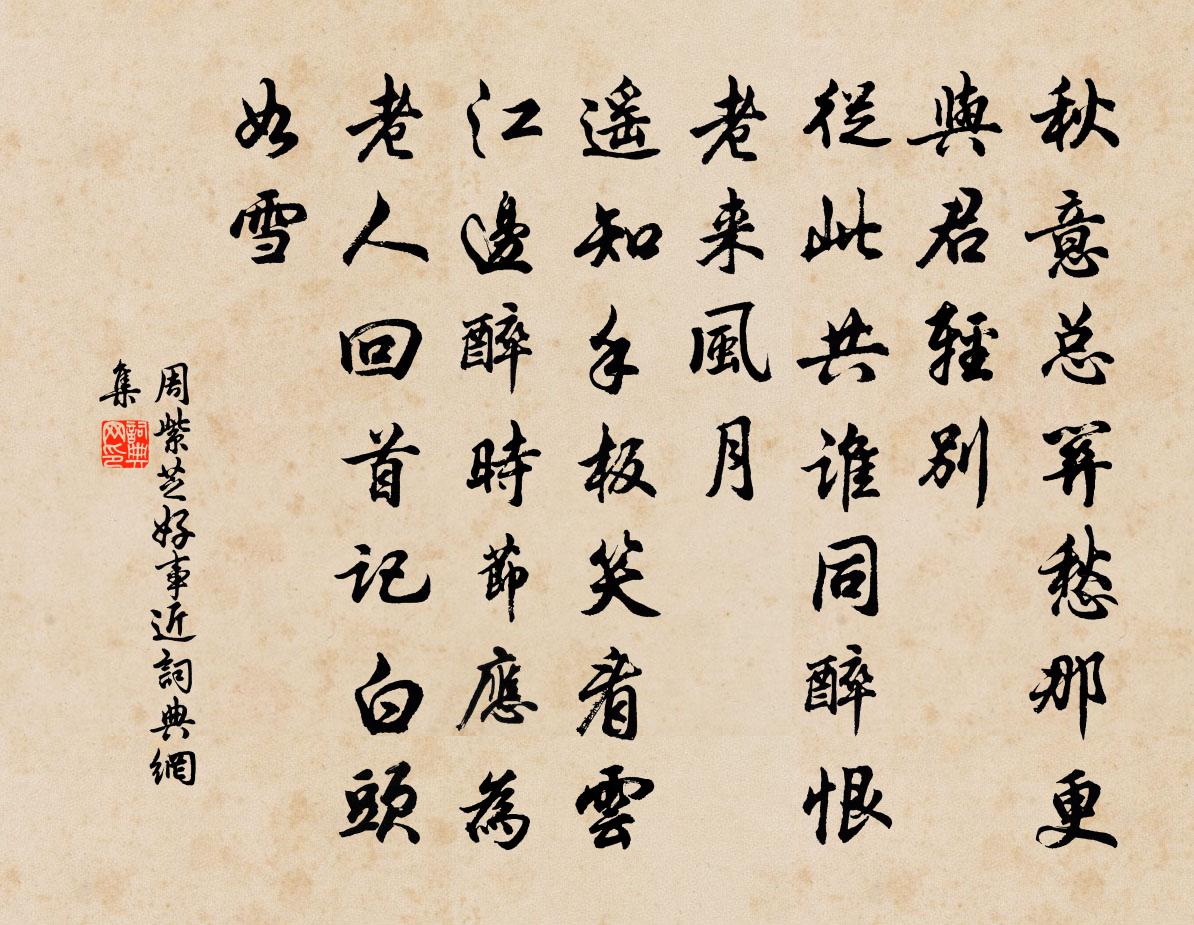 秋意总關愁那更
與君輕别
從此共誰同醉恨
老来風月
遥知手板笑看雲
江邊醉時節應為
老人回首記白頭
如雪
周紫芝好事近詞典網
集
詞典
网印